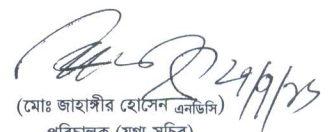 (মোঃ জাহাঙ্গীর হোসেন এনডিসি)
পরিচালক (যুগ্ম সচিব)